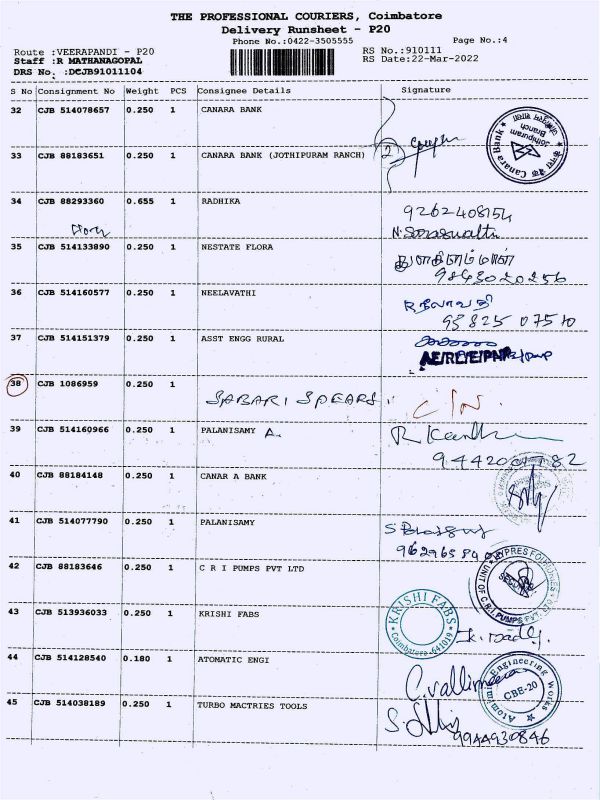 THE PROFESSIONAL COURIERS, Coimbatore
Delivery Runsheet - P20
Phone No.:0422-3505555
Page No.:4
Route :VEERAPANDI - P20
RS No.:910111
Staff :R MATHANAGOPAL
RS Date:22-Mar-2022
DRS No. :DCJB91011104
S No Consignment No Weight PCS Consignee Details Signature
32 CJB 514078657 0.250 1 CANARA BANK
33 CJB 88183651 0.250 1 CANARA BANK (JOTHIPURAM RANCH)
Canara Bank
Jothipuram
Branch
34 CJB 88293360 0.655 1 RADHIKA
35 CJB 514133890 0.250 1 NESTATE FLORA
9843020256
36 CJB 514160577 0.250 1 NEELAVATHI
R.நீலாவதி
93825 07510
37 CJB 514151379 0.250 1 ASST ENGG RURAL
38 CJB 1086959 0.250 1
SABARI SPEARS
39 CJB 514160966 0.250 1 PALANISAMY A.
40 CJB 88184148 0.250 1 CANAR A BANK
41 CJB 514077790 0.250 1 PALANISAMY
42 CJB 88183646 0.250 1 C R I PUMPS PVT LTD
43 CJB 513936033 0.250 1 KRISHI FABS
KRISHI FABS
Coimbatore-641019
44 CJB 514128540 0.180 1 ATOMATIC ENGI
C.vallimeena
Engineering Works
CBE-20
45 CJB 514038189 0.250 1 TURBO MACTRIES TOOLS
9944930846